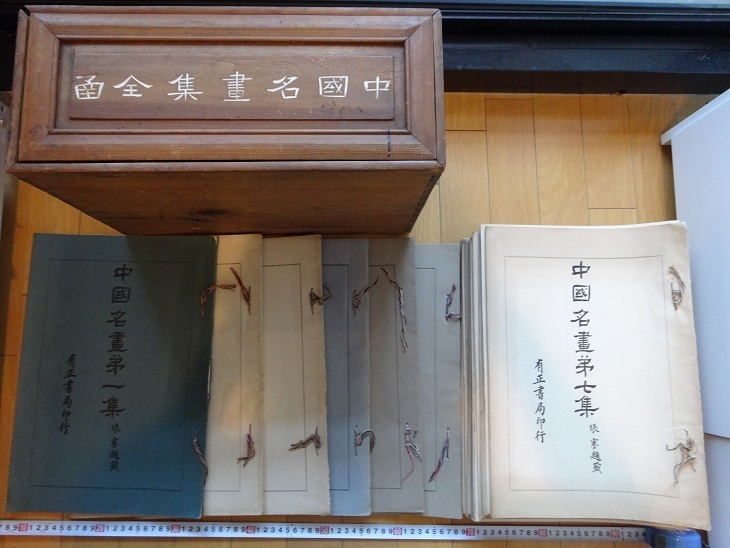 中國名畫集全函
中國名畫第一集
有正書局印行
中國名畫第七集
有正書局印行